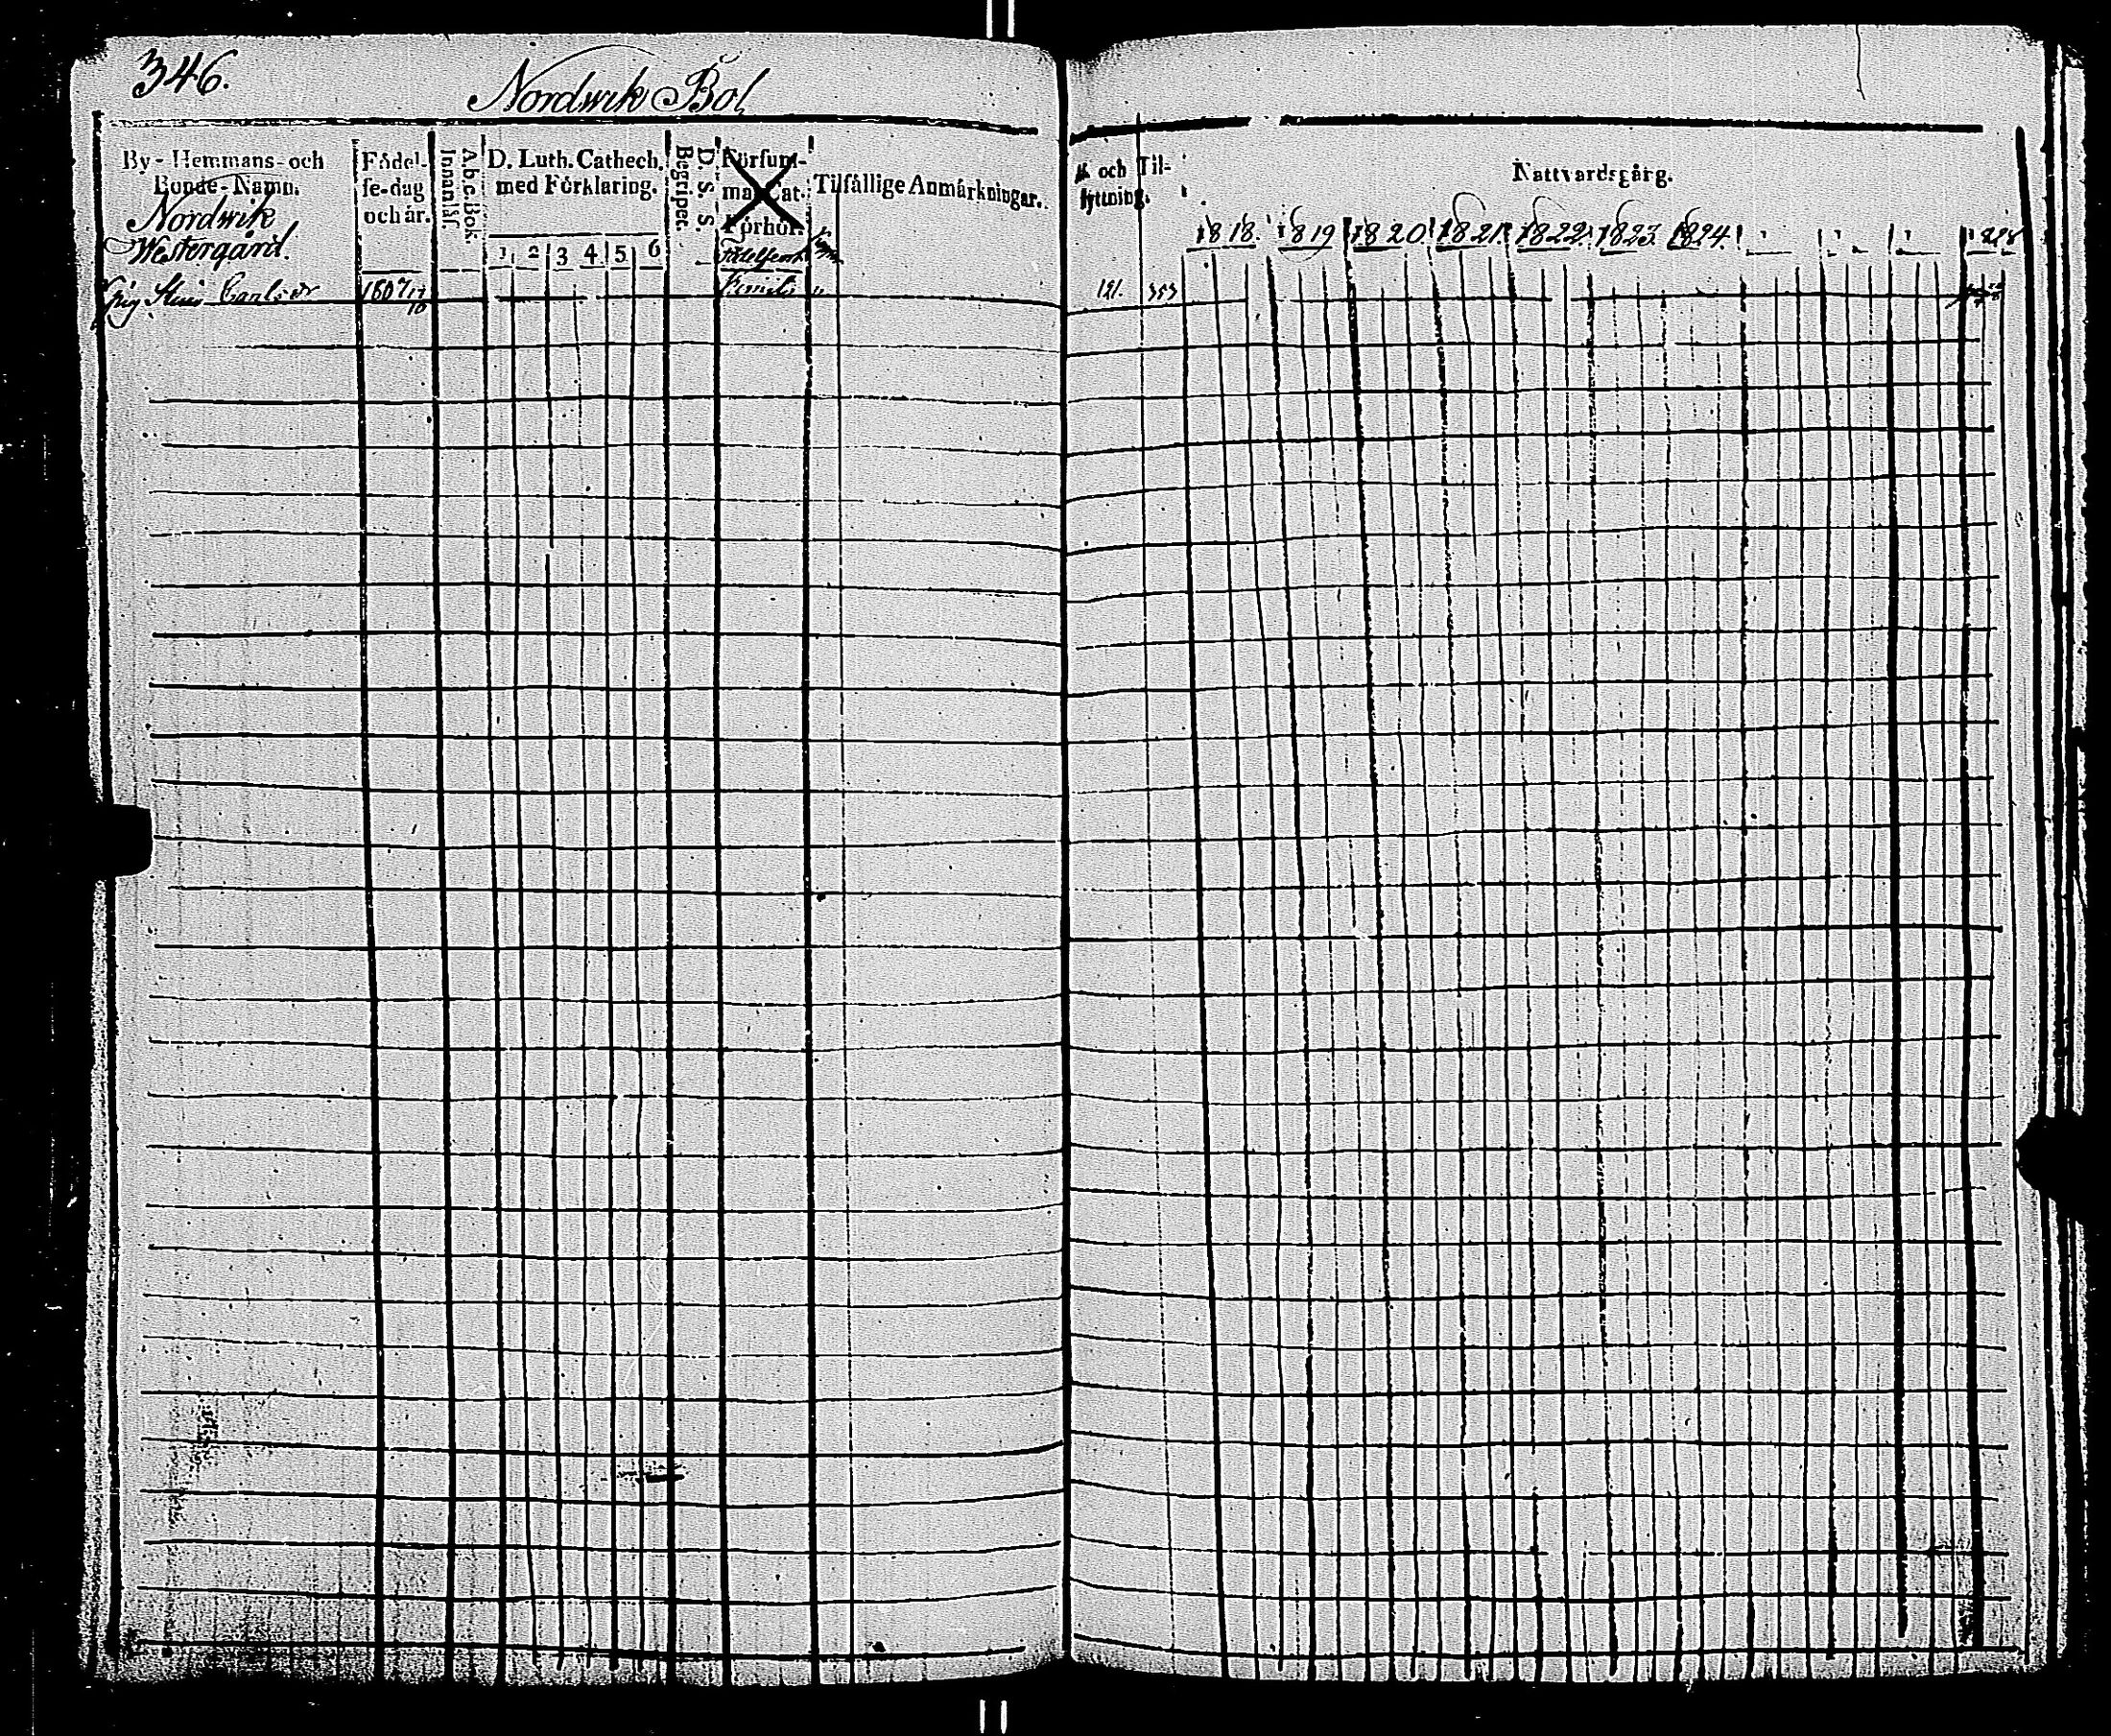 346.
Nordwik Bol
By- Hemmans- och
Bonde-Namn.
Nordwik
Westergård.
Födel-
se-dag
och år.
A.b.c.Bok.
Innanläs.
D. Luth. Cathech.
med Förklaring.
1 2 3 4 5 6
D. S. S.
Begripet.
Försum-
mat Cat.
Förhör.
Tilfällige Anmärkningar.
och Til-
flyttning.
Nattvardsgång.
1818 1819 1820 1821 1822 1823 1824
Stina Carlsdr 1807 121.